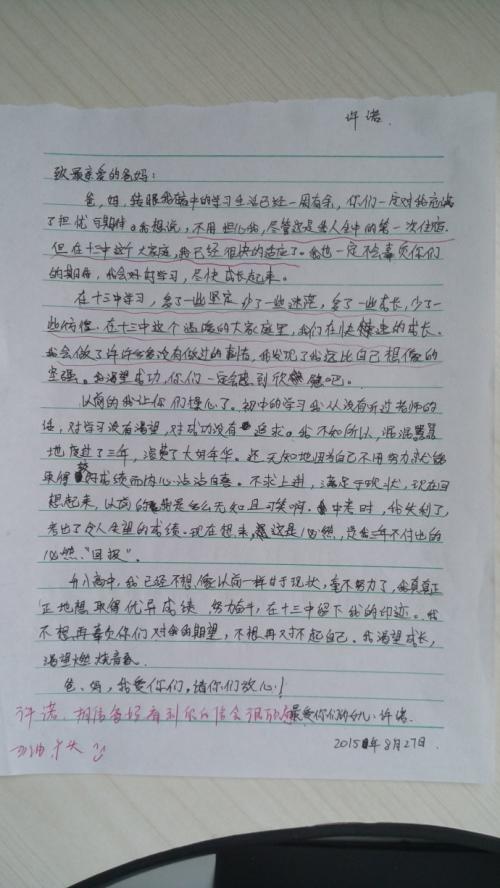 许诺.
致最亲爱的爸妈:
爸,妈,转眼我高中的学习生活已经一周有余,你们一定对我充满
了担忧与期待。我想说,不用担心我,尽管这是我人生中的第一次住宿.
但在十三中这个大家庭,我已经很快的适应了。我也一定不会辜负你们
的期待,我会好好学习,尽快成长起来。
在十三中学习,多了一些坚定少了一些迷茫,多了一些成长,少了一
些依偎.在十三中这个温暖的大家庭里,我们在快速的成长.
我会做了许许多多没有做过的事情,我发现了我远比自己想像的
坚强。我渴望成功,你们一定会感到欣慰吧。
以前的我让你们操心了。初中的学习我从没有听过老师的
话,对学习没有渴望,对成功没有追求。我不知所以,混混噩噩
地度过了三年,浪费了大好年华。还无知地因为自己不用努力就能
取得的成绩而内心沾沾自喜。不求上进,满足于现状,现在回
想起来,以前的我是多么无知且可笑啊。中考时,我失利了,
考出了令人失望的成绩。现在想来,这是必然,是我三年不付出的
必然"回报".
升入高中,我已经不想像以前一样甘于现状,毫不努力了,我真真正
正地想取得优异成绩 努力奋斗,在十三中留下我的印迹。我
不想再辜负你们对我的期望,不想再对不起自己。我渴望成长,
渴望燃烧青春。
爸、妈,我爱你们,请你们放心!
最爱你们的女儿:许诺.
许诺,相信爸妈看到你的信会很欣慰
加油
2015年8月27日.